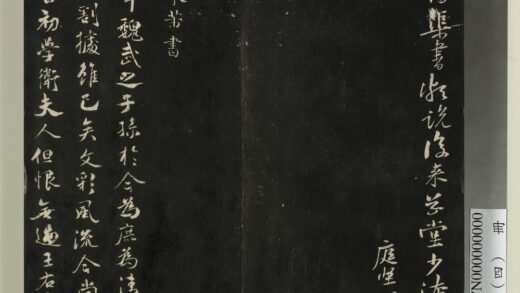 集書後来草堂少
庭堅
書
魏武之子孫於今為庶為清
割據雖已矣文彩風流今尚
初學衛夫人但恨無過王右
(四)
000000000N